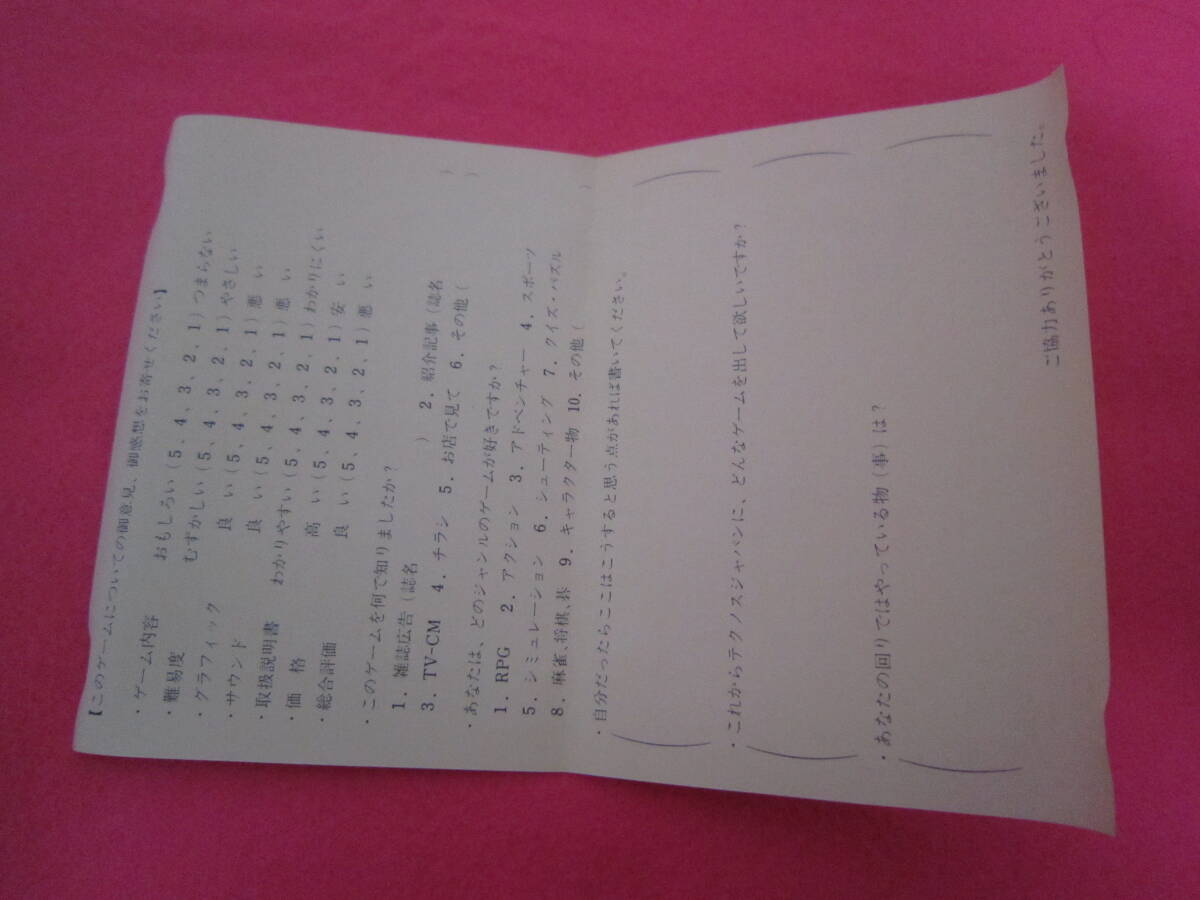 【このゲームについての御意見、御感想をお寄せください】
・ゲーム内容 おもしろい（5、4、3、2、1）つまらない
・難易度 むずかしい（5、4、3、2、1）やさしい
・グラフィック 良い（5、4、3、2、1）悪い
・サウンド 良い（5、4、3、2、1）悪い
・取扱説明書 わかりやすい（5、4、3、2、1）わかりにくい
・価格 高い（5、4、3、2、1）安い
・総合評価 良い（5、4、3、2、1）悪い
・このゲームを何で知りましたか？
1．雑誌広告（誌名 ） 2．紹介記事（誌名 ）
3．TV-CM 4．チラシ 5．お店で見て 6．その他（ ）
・あなたは、どのジャンルのゲームが好きですか？
1．RPG 2．アクション 3．アドベンチャー 4．スポーツ
5．シミュレーション 6．シューティング 7．クイズ・パズル
8．麻雀、将棋、碁 9．キャラクター物 10．その他（ ）
・自分だったらここはこうすると思う点があれば書いてください。
（ ）
・これからテクノスジャパンに、どんなゲームを出して欲しいですか？
（ ）
・あなたの回りではやっている物（事）は？
（ ）
ご協力ありがとうございました。